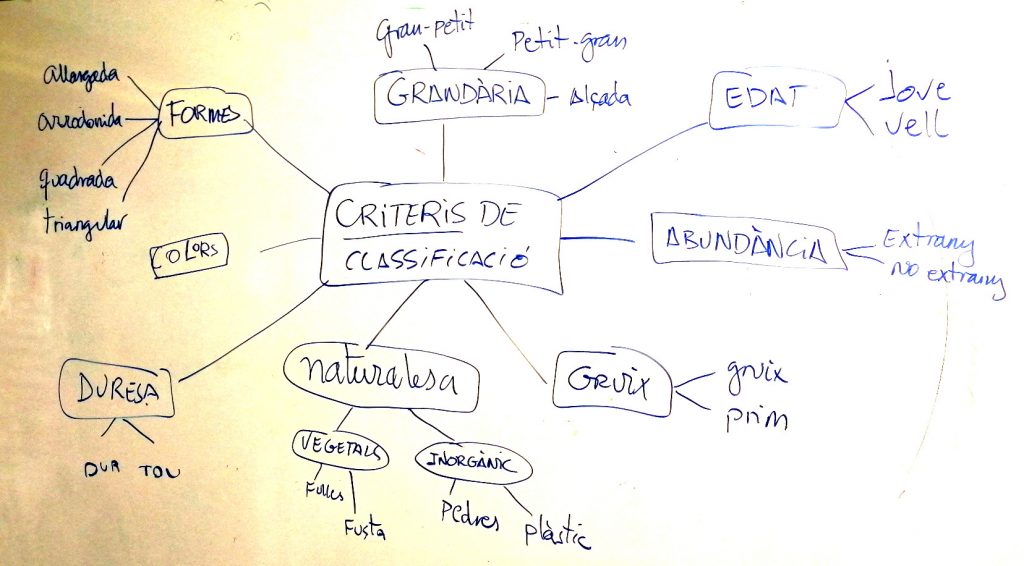 Gran-petit
Petit-gran
GRANDÀRIA
Alçada
EDAT
Jove
Vell
Allargada
arrodonida
quadrada
triangular
FORMES
CRITERIS DE
CLASSIFICACIÓ
COLORS
ABUNDÀNCIA
Extrany
No extrany
DURESA
DUR TOU
naturalesa
VEGETALS
Fulles
Fusta
INORGÀNIC
Pedres
plàstic
GRUIX
gruix
prim